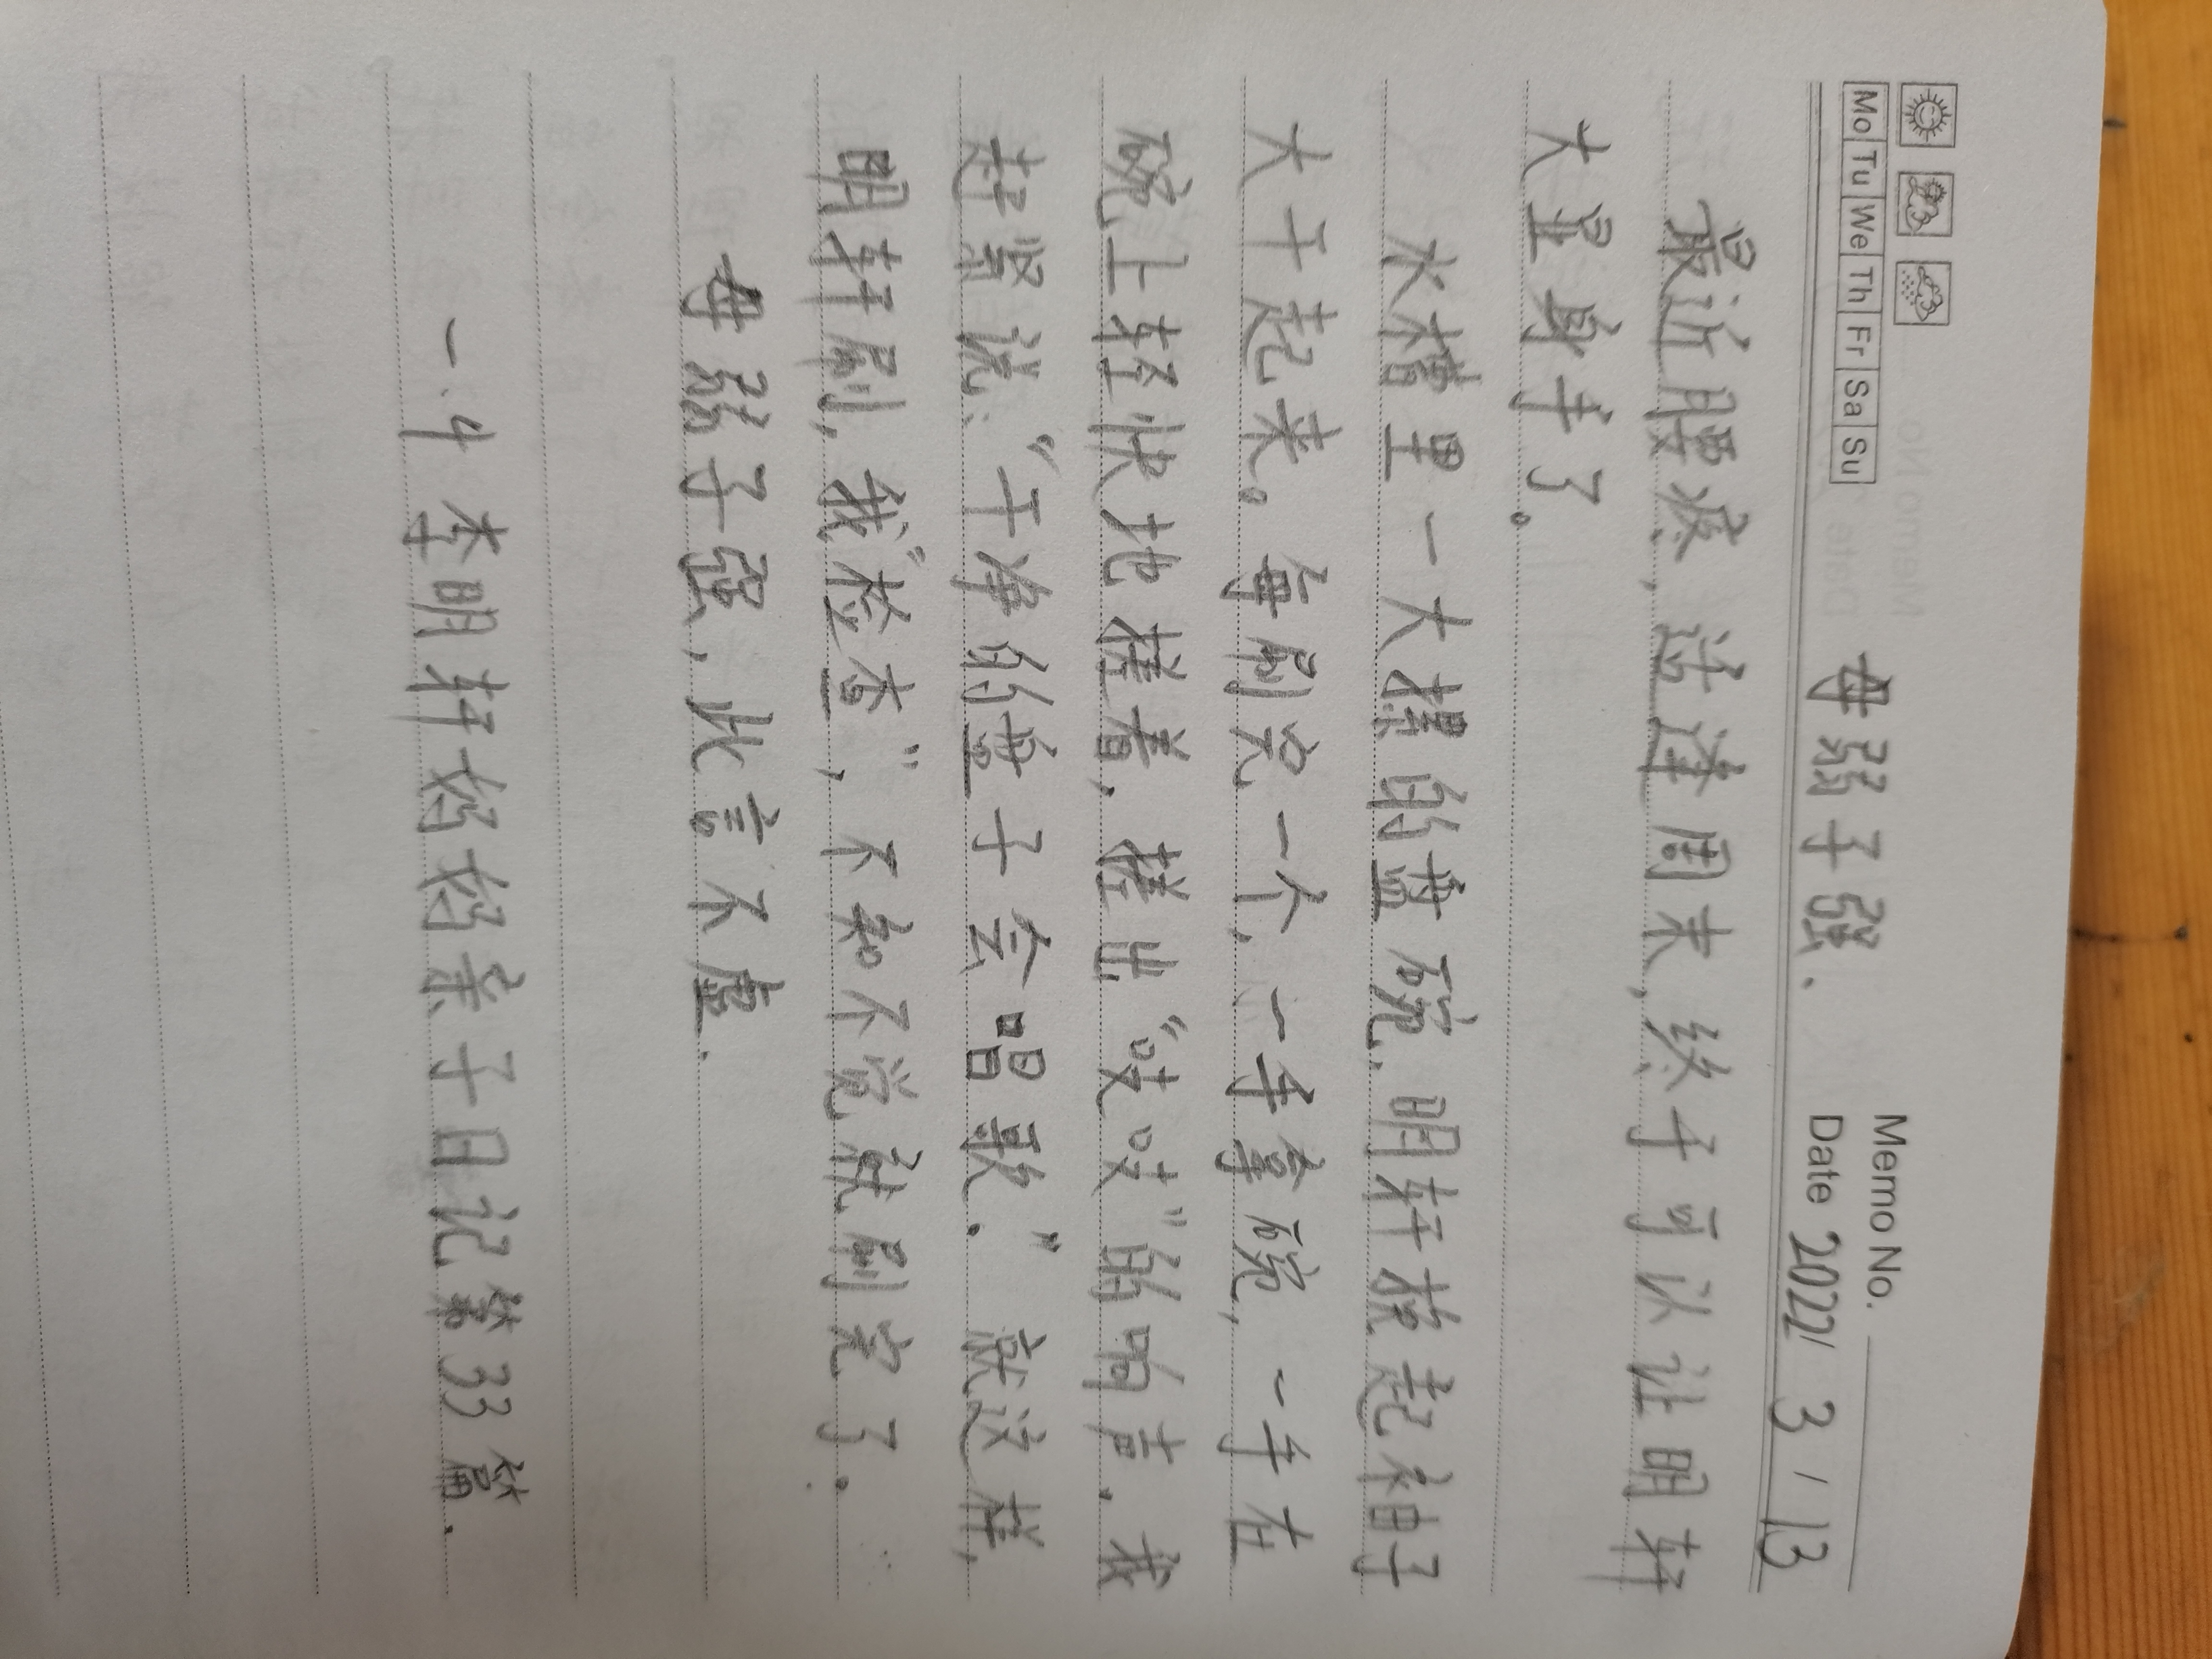 Memo No.
Mo Tu We Th Fr Sa Su
Date 2022/ 3 / 13
母弱子强.
最近腰疼,适逢周末,终于可以让明轩
大显身手了。
水槽里一大摞的盘碗.明轩撸起袖子
大干起来。每刷完一个,一手拿碗,一手在
碗上轻快地搓着,搓出“吱吱”的响声.我
赶紧说:“干净的盘子会唱歌.”就这样,
明轩刷,我“检查”,不知不觉就刷完了.
母弱子强,此言不虚.
一.4 李明轩妈妈亲子日记第33篇.